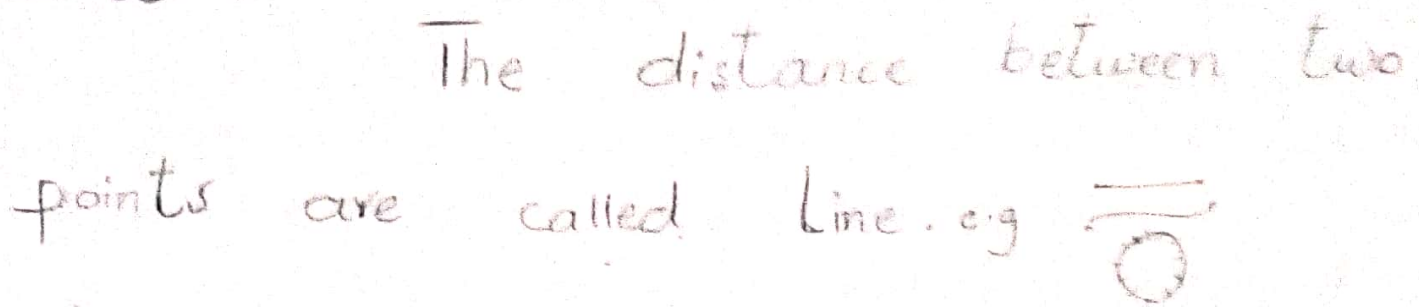 The distance between two
points are called Line. e.g